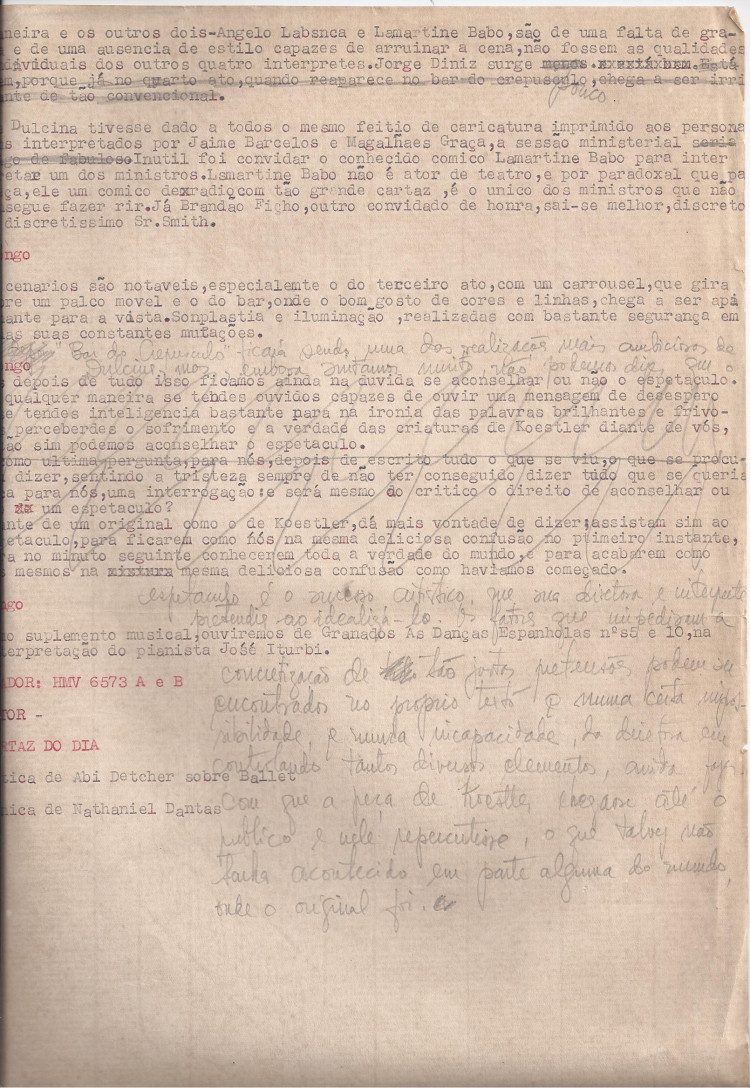 neira e os outros dois-Angelo Labanca e Lamartine Babo,são de uma falta de gra-
e de uma ausencia de estilo capazes de arruinar a cena,não fossem as qualidades
dividuais dos outros quatro interpretes.Jorge Diniz surge
m,porque já no quarto ato,quando reaparece no bar do crepusculo,chega a ser irri
nte de tão convencional.
Dulcina tivesse dado a todos o mesmo feitio de caricatura imprimido aos persona
s interpretados por Jaime Barcelos e Magalhaes Graça,a sessão ministerial seria
go de fabuloso.Inutil foi convidar o conhecido comico Lamartine Babo para inter
etar um dos ministros.Lamartine Babo não é ator de teatro,e por paradoxal que pa
ça,ele um comico dexradio,com tão grande cartaz ,é o unico dos ministros que não
nsegue fazer rir.Já Brandão Ficho,outro convidado de honra,sai-se melhor,discreto
discretissimo Sr.Smith.
ngo
cenarios são notaveis,especialemte o do terceiro ato,com um carrousel,que gira
re um palco movel e o do bar,onde o bom gosto de cores e linhas,chega a ser apá
ante para a vista.Sonplastia e iluminação ,realizadas com bastante segurança em
as suas constantes mutações.
"Bar do Crepusculo" ficará sendo uma das realizações mais ambiciosas de
Dulcina, mas, embora sintamos muito, não podemos dizer que o
ngo
s depois de tudo isso ficamos ainda na duvida se aconselhar ou não o espetaculo.
qualquer maneira se tendes ouvidos capazes de ouvir uma mensagem de desespero
e tendes inteligencia bastante para na ironia das palavras brilhantes e frivo-
s perceberdes o sofrimento e a verdade das criaturas de Koestler diante de vós,
ão sim podemos aconselhar o espetaculo.
omo ultima pergunta,para nós,depois de escrito tudo o que se viu,o que se procu-
dizer,sentindo a tristeza sempre de não ter conseguido dizer tudo que se queria
ca para nós,uma interrogação:e será mesmo do critico o direito de aconselhar ou
xx um espetaculo?
nte de um original como o de Koestler,dá mais vontade de dizer;assistam sim ao
etaculo,para ficarem como nós na mesma deliciosa confusão no primeiro instante,
ra no minuto seguinte conhecerem toda a verdade do mundo,e para acabarem como
s mesmos na mesma deliciosa confusão como haviamos começado.
espetaculo é o sucesso artistico, que sua diretora e interprete
ngo
pretendia ao idealizá-lo. Os fatores que impediram a
o suplemento musical,ouviremos de Granados As Danças Espanholas nºs5 e 10,na
terpretação do pianista José Iturbi.
concretização de tão justas pretensões podem ser
ADOR: HMV 6573 A e B
encontrados no proprio texto e numa certa
TOR -
e numa incapacidade, da diretora em
RTAZ DO DIA
controlando tantos diversos elementos,
tica de Abi Detcher sobre Ballet
com que a peça de Koestler chegasse até o
nica de Nathaniel Dantas
publico e nele repercutisse, o que talvez não
tenha acontecido em parte alguma do mundo,
onde o original foi.